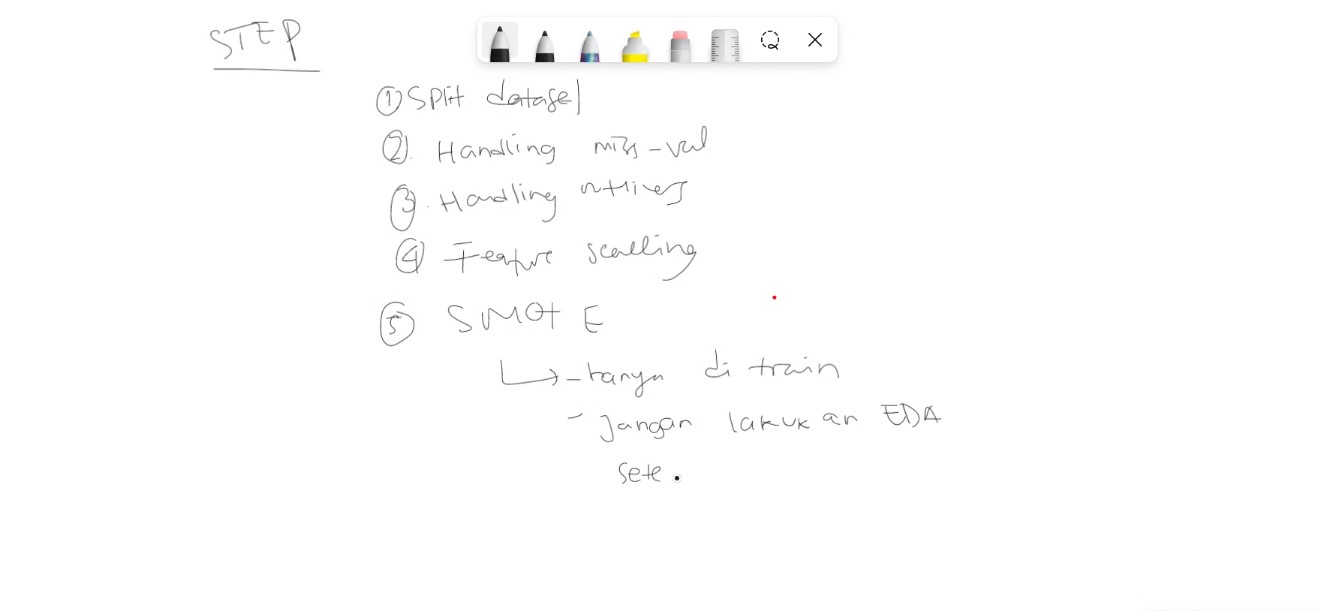 STEP
① Split dataset
②. Handling miss-val
③. Handling outliers
④ Feature scalling
⑤ SMOTE
↳ - hanya di train
- jangan lakukan EDA
sete